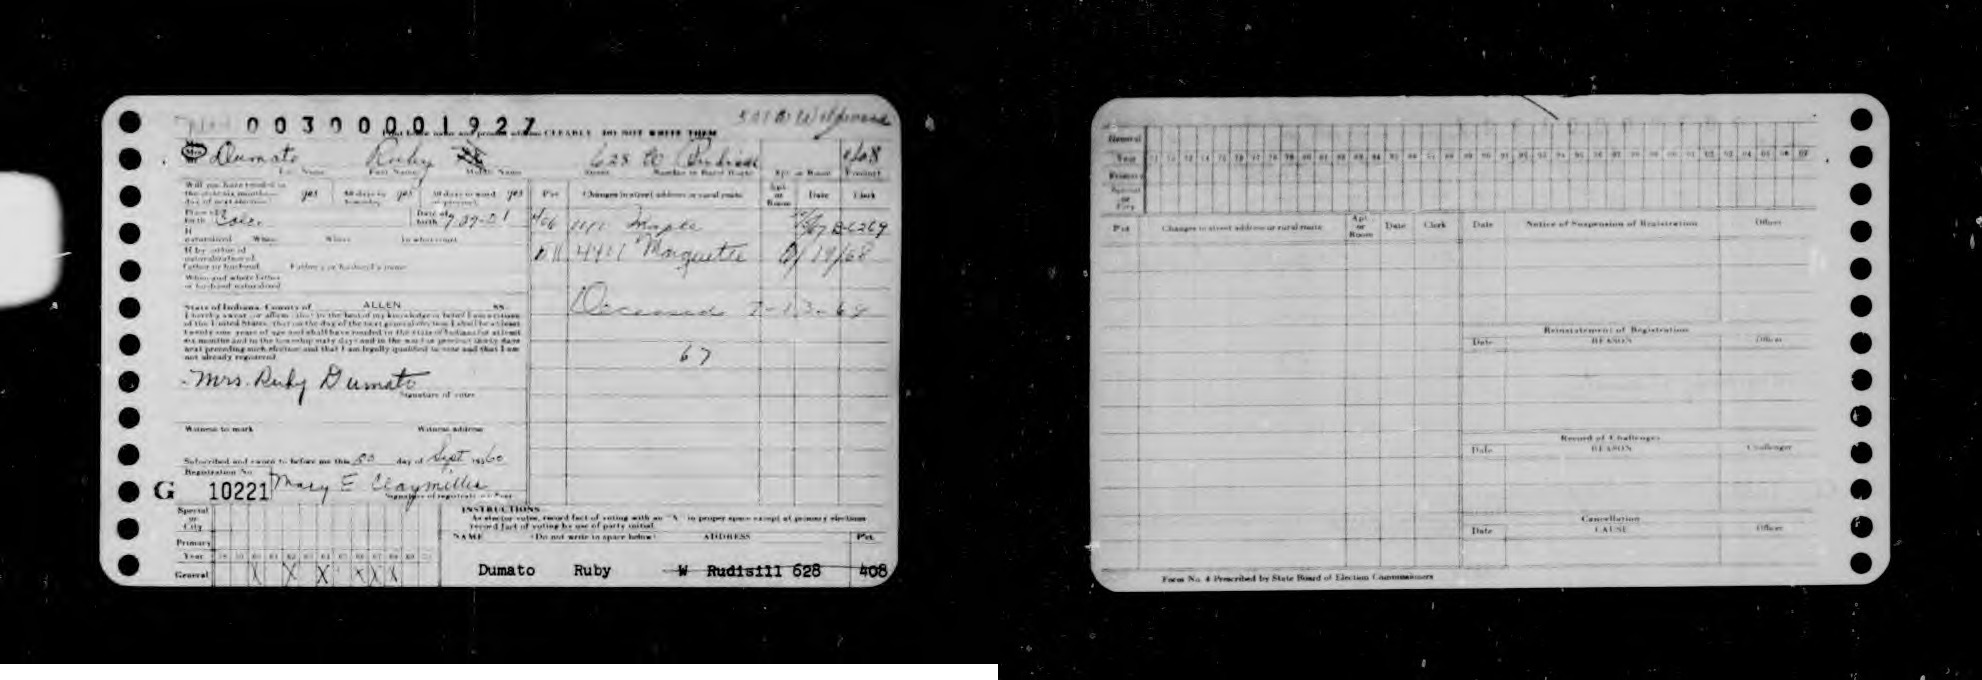 003000001927
CLEARLY DO NOT WRITE THEM
Mrs Dumato Ruby 628 W Rudisill 408
First Name Middle Name Street Number or Rural Route Apt. or Room Precinct
Will you have resided in
the state six months yes 60 days in yes 30 days in ward yes
day of next election township or precinct
Pct Changes in street address or rural route Apt. or Room Date Clerk
Place of birth Colo. Date of birth
406 1111 Maple
If naturalized When Where In what court
4411 Marquette 6/19/68
If by virtue of
naturalization of
father or husband Father's or husband's name
When and where father
or husband naturalized
Deceased
State of Indiana, County of ALLEN SS
I hereby swear (or affirm) that to the best of my knowledge or belief I am a citizen
of the United States, that on the day of the next general election I shall be at least
twenty-one years of age and shall have resided in the state of Indiana for at least
six months and in the township sixty days and in the ward or precinct thirty days
next preceding such election and that I am legally qualified to vote and that I am
not already registered.
67
Mrs. Ruby Dumato
Signature of voter
Witness to mark Witness address
Subscribed and sworn to before me this day of Sept 1960
Registration No.
G 10221 Mary E Claymiller
Signature of registration officer
Special or City
Primary
Year
General X X X X X X
INSTRUCTIONS
As elector votes, record fact of voting with an "X" in proper space except at primary elections
record fact of voting by use of party initial.
NAME (Do not write in space below) ADDRESS Pct.
Dumato Ruby W Rudisill 628 408
General
Year
Primary
Special or City
Pct Changes in street address or rural route Apt. or Room Date Clerk
Date Notice of Suspension of Registration Officer
Reinstatement of Registration
Date REASON Officer
Record of Challenges
Date REASON Challenger
Cancellation
Date CAUSE Officer
Form No. 4 Prescribed by State Board of Election Commissioners